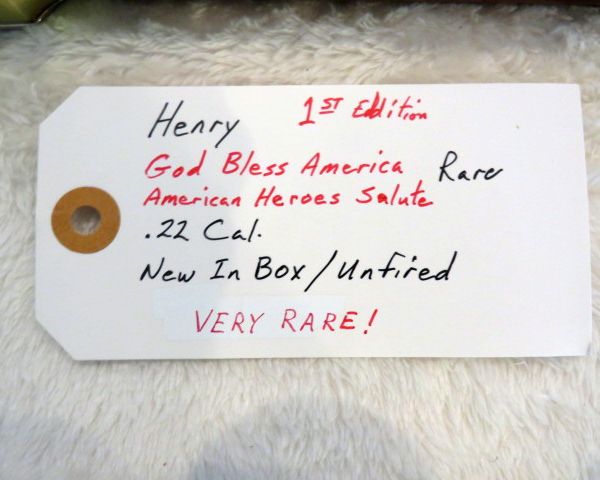 Henry 1ST Edition
God Bless America Rare
American Heroes Salute
.22 Cal.
New In Box/Unfired
VERY RARE!